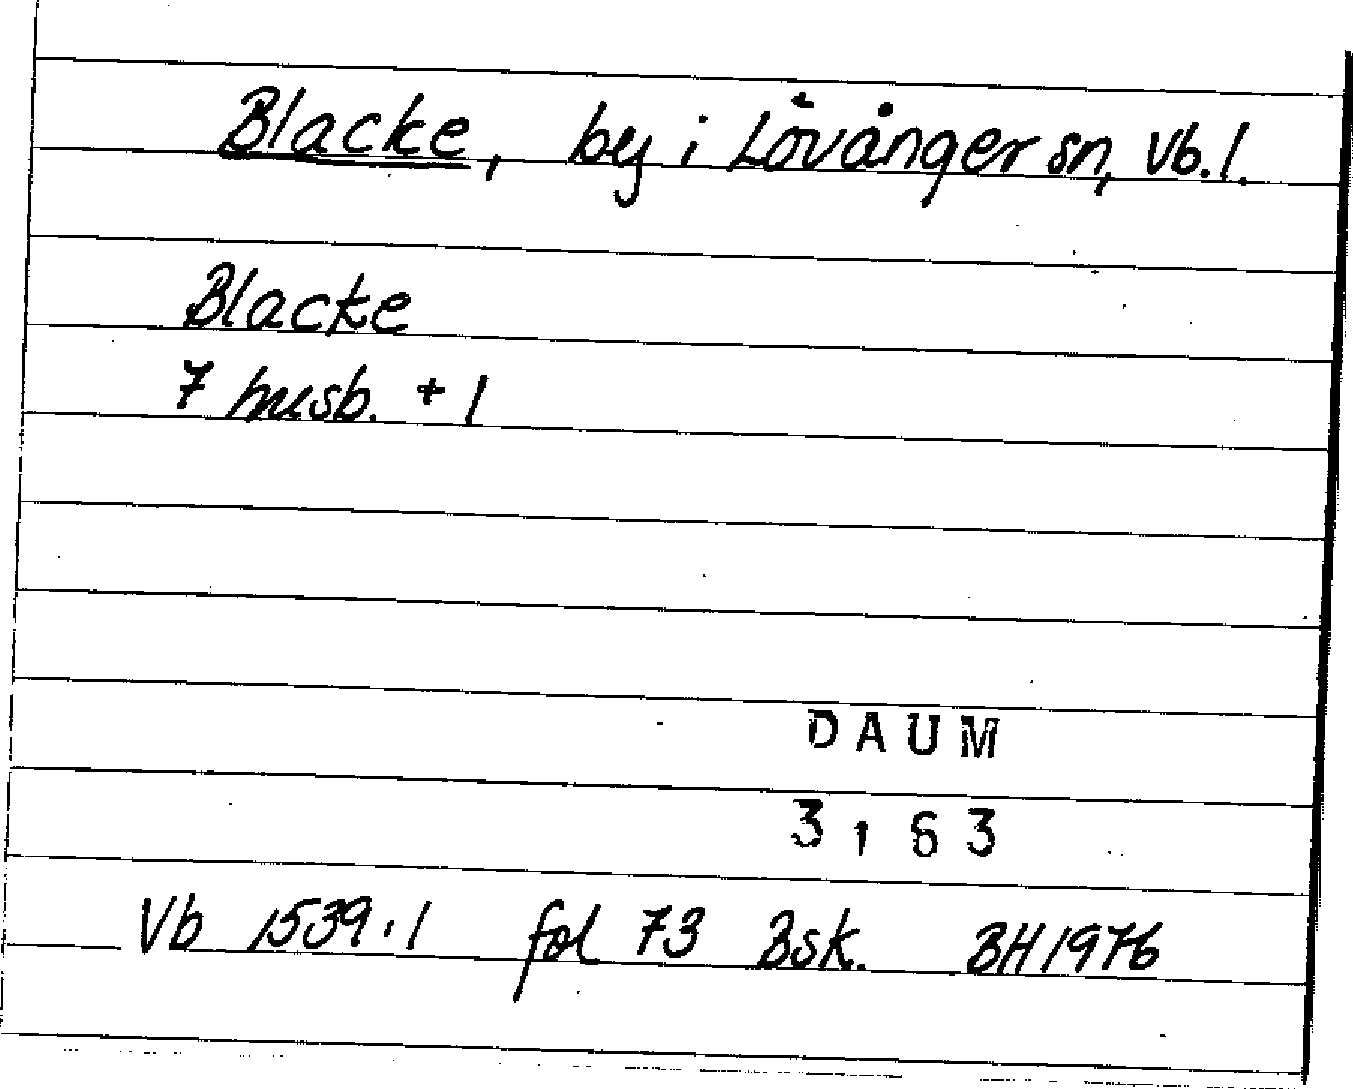 Blacke, by i Lövånger sn, Vb. l.
Blacke
7 husb. + 1
DAUM
3163
Vb 1539:1 fol 73 Bsk. BH 1976